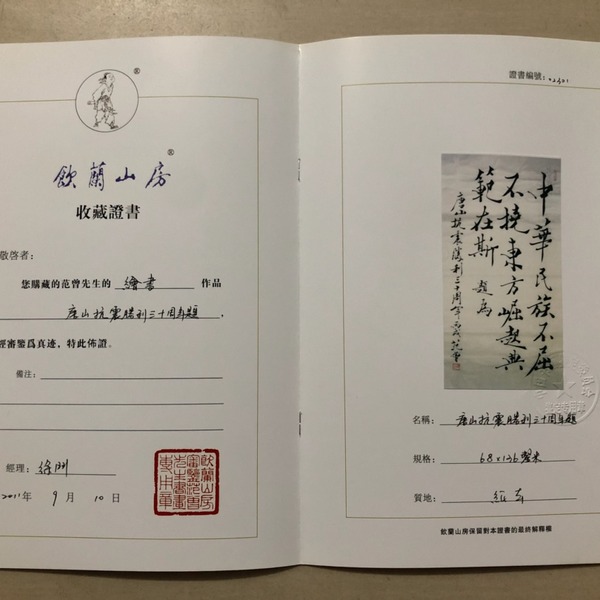 ®
飲蘭山房®
收藏證書
敬啓者：
您購藏的范曾先生的 繪書 作品
唐山抗震勝利三十周年題，
經審鑒爲真迹，特此佈證。
備注：
經理：
2011年 9月 10日
飲蘭山房
審鑒范曾
先生書畫
專用章
證書編號：
中華民族不屈
不撓東方崛起典
範在斯 題爲
唐山抗震勝利三十周年
名稱：唐山抗震勝利三十周年題
規格：68×136釐米
質地：
飲蘭山房保留對本證書的最終解釋權